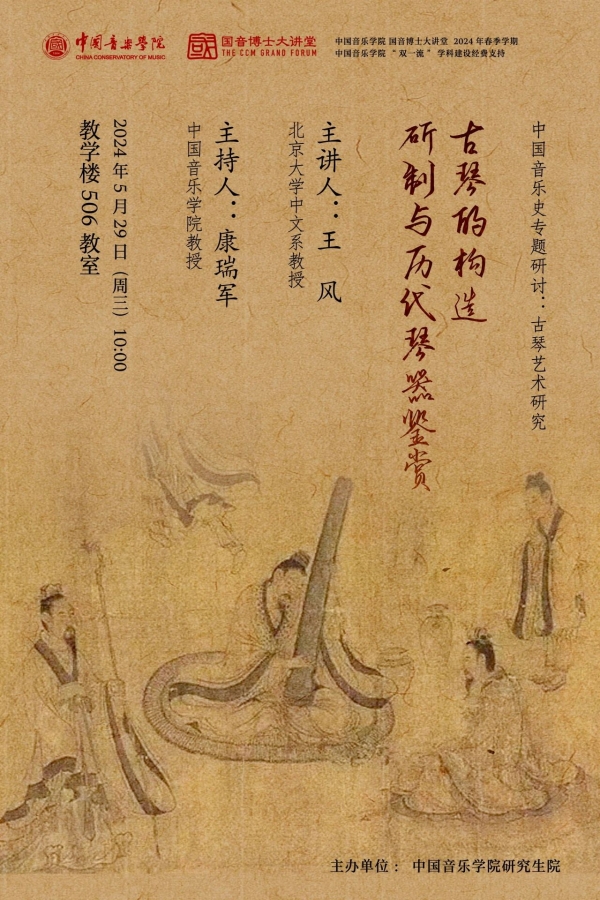 中国音乐学院
CHINA CONSERVATORY OF MUSIC
国音博士大讲堂
THE CCM GRAND FORUM
中国音乐学院 国音博士大讲堂 2024 年春季学期
中国音乐学院 “双一流” 学科建设经费支持
中国音乐史专题研讨：古琴艺术研究
古琴的构造
斫制与历代琴器鉴赏
主讲人：王 风
北京大学中文系教授
主持人：康瑞军
中国音乐学院教授
2024 年 5 月 29 日（周三）10:00
教学楼 506 教室
主办单位： 中国音乐学院研究生院